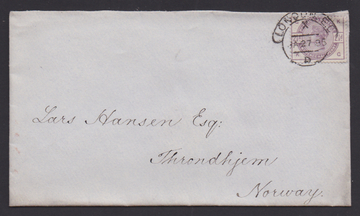 LONDON
X
27
D
Lars Hansen Esq:
Throndhjem
Norway.